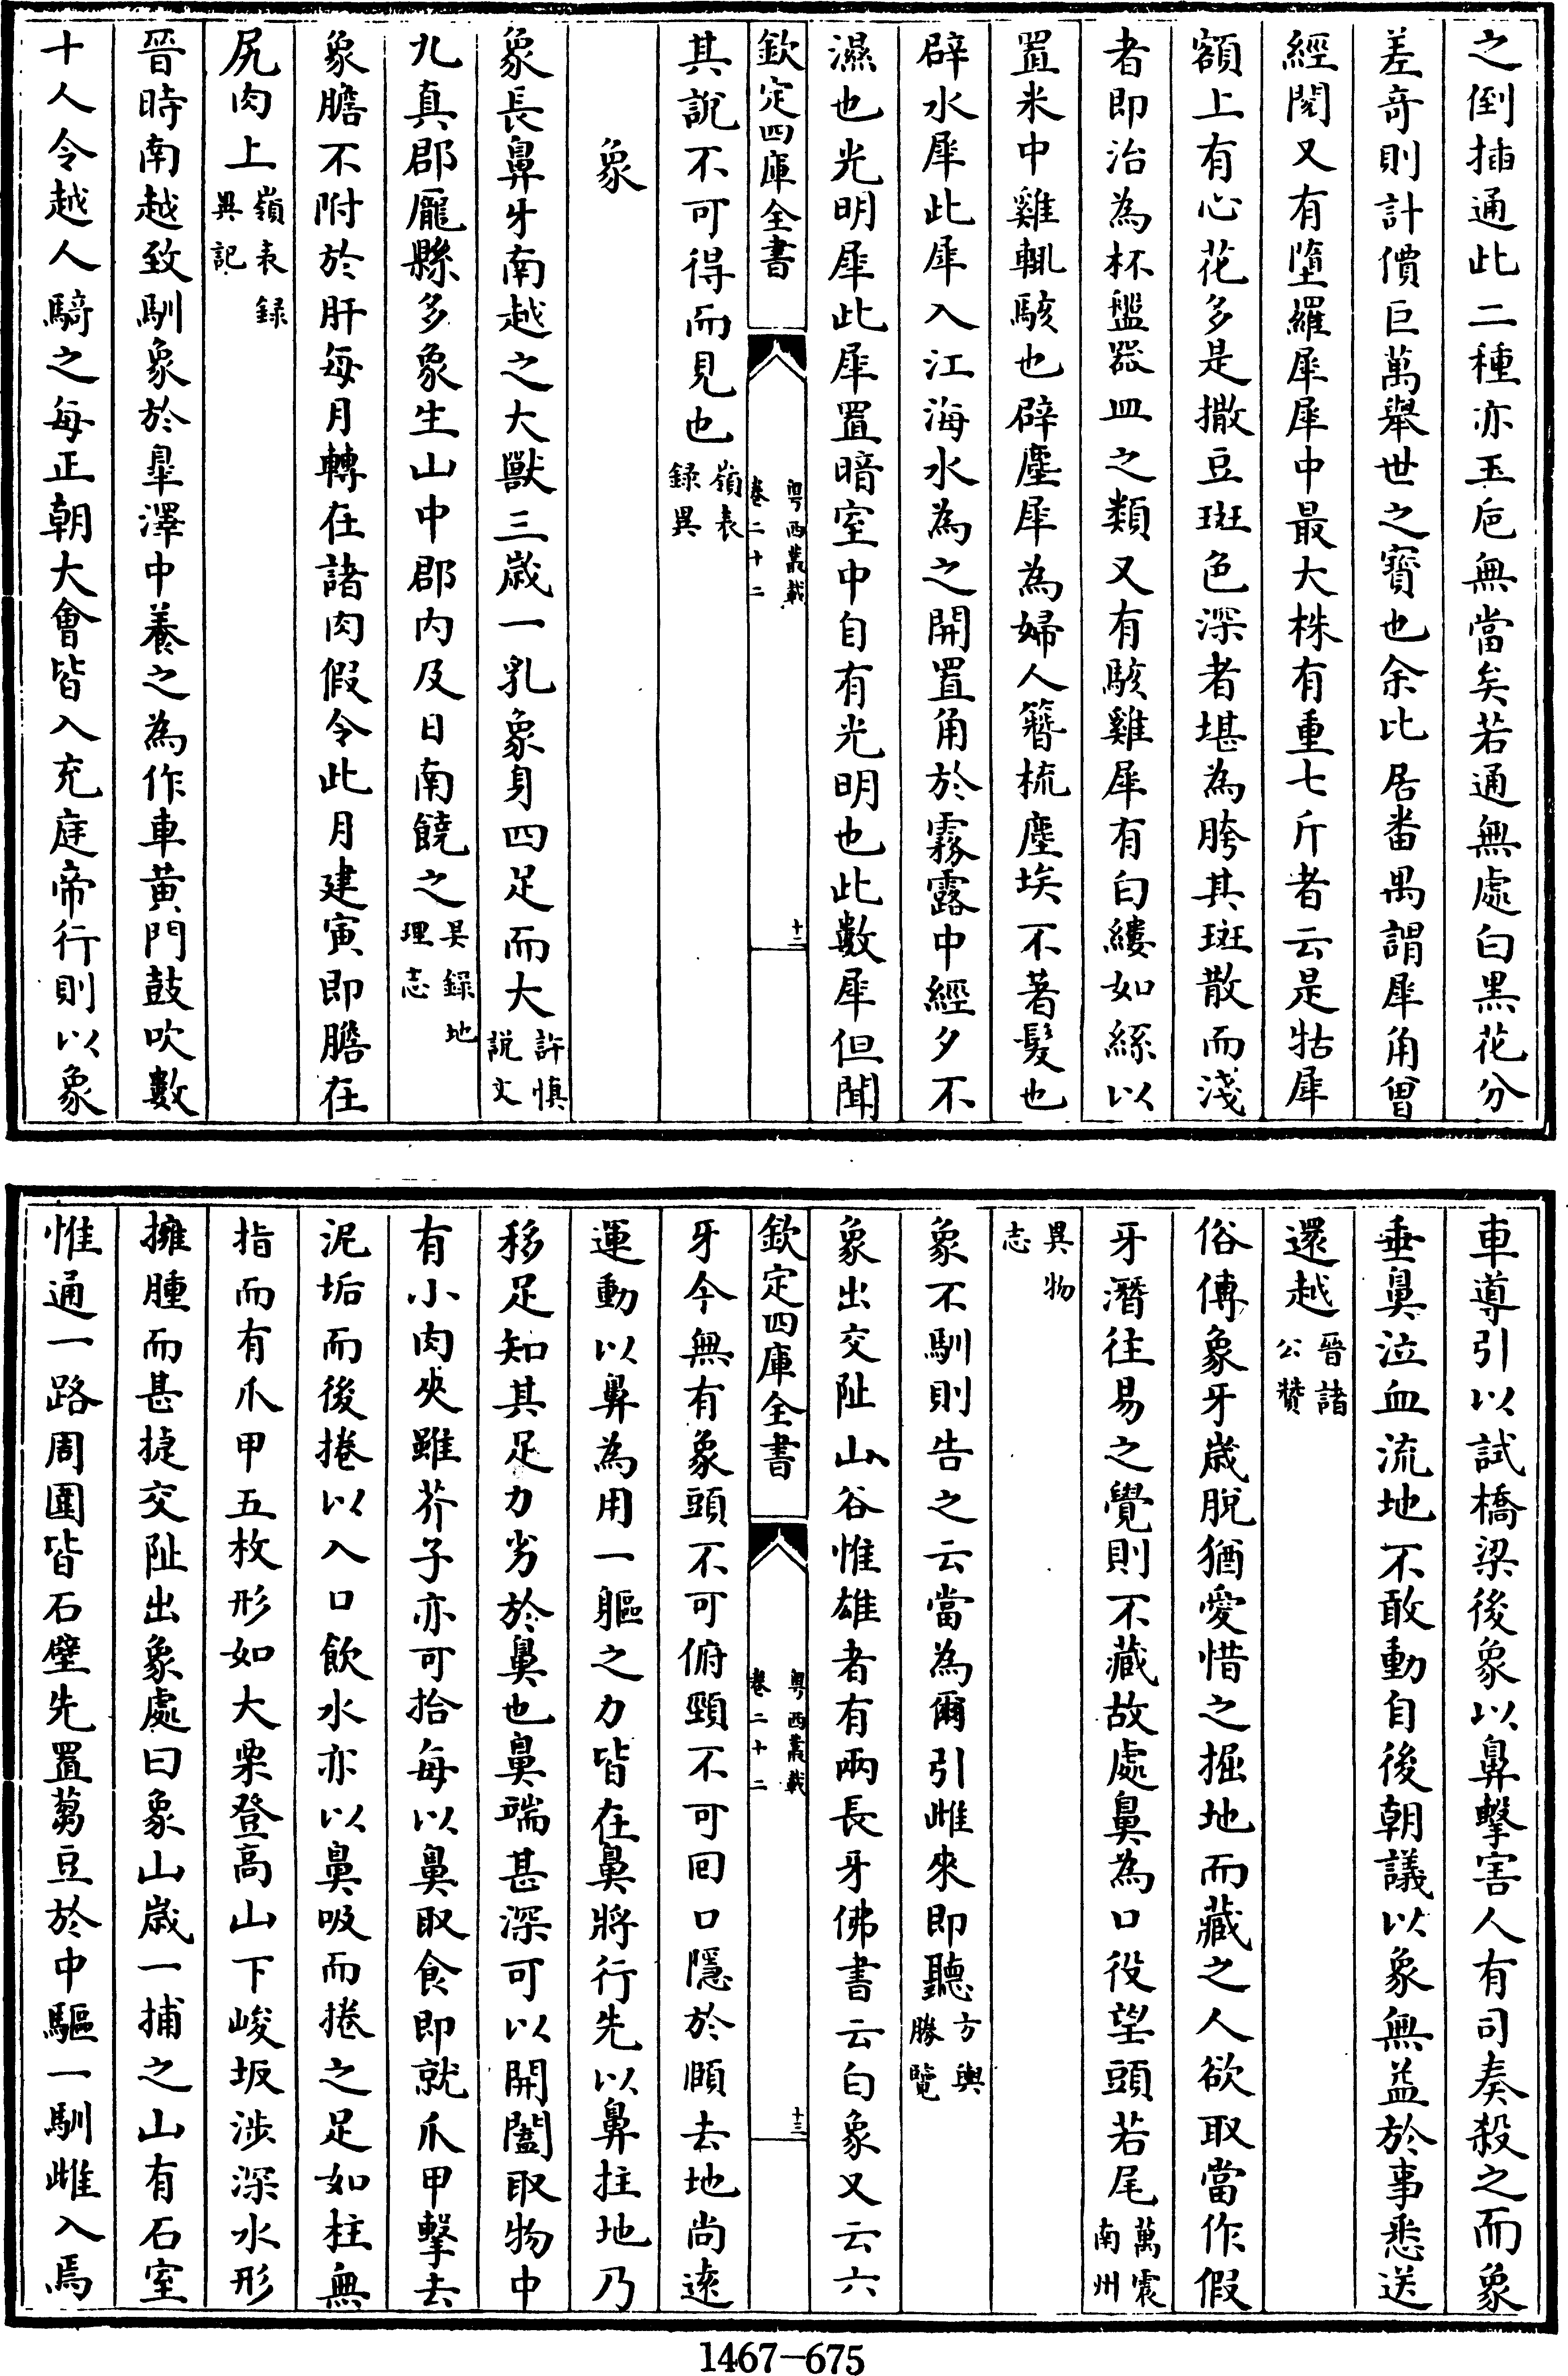 之倒插通此二種亦玉巵無當矣若通無處白黒花分
差竒則計價巨萬舉世之寳也余比居畨禺謂犀角曾
經閱又有墮羅犀犀中最大株有重七斤者云是牯犀
額上有心花多是撒豆斑色深者堪為胯其斑散而淺
者即治為杯盤器皿之類又有駭雞犀有白縷如絲以
置米中雞輒駭也辟塵犀為婦人簪梳塵埃不著髪也
辟水犀此犀入江海水為之開置角於霧露中經夕不
濕也光明犀此犀置暗室中自有光明也此數犀但聞
欽定四庫全書
粤西叢載
卷二十二
十二
其說不可得而見也嶺表
録異
象
象長鼻牙南越之大獸三歳一乳象身四足而大許慎
說文
九真郡龎縣多象生山中郡内及日南饒之吳録地
理志
象膽不附於肝每月轉在諸肉假令此月建寅即膽在
尻肉上嶺表録
異記
晉時南越致馴象於臯澤中養之為作車黄門鼓吹數
十人令越人騎之每正朝大會皆入充庭帝行則以象
車導引以試橋梁後象以鼻擊害人有司奏殺之而象
垂鼻泣血流地不敢動自後朝議以象無益於事悉送
還越晉諸
公贊
俗傳象牙歳脫猶愛惜之掘地而藏之人欲取當作假
牙潛往易之覺則不藏故處鼻為口役望頭若尾萬震
南州
異物
志
象不馴則告之云當為爾引雌來即聽方輿
勝覽
象出交阯山谷惟雄者有兩長牙佛書云白象又云六
欽定四庫全書
粤西叢載
卷二十二
十三
牙今無有象頭不可俯頸不可回口隱於頤去地尚逺
運動以鼻為用一軀之力皆在鼻將行先以鼻拄地乃
移足知其足力劣於鼻也鼻端甚深可以開闔取物中
有小肉夾雖芥子亦可拾每以鼻取食即就爪甲擊去
泥垢而後捲以入口飲水亦以鼻吸而捲之足如柱無
指而有爪甲五枚形如大栗登高山下峻坂涉深水形
擁腫而甚捷交阯出象處曰象山歳一捕之山有石室
惟通一路周圍皆石壁先置芻豆於中驅一馴雌入焉
1467-675